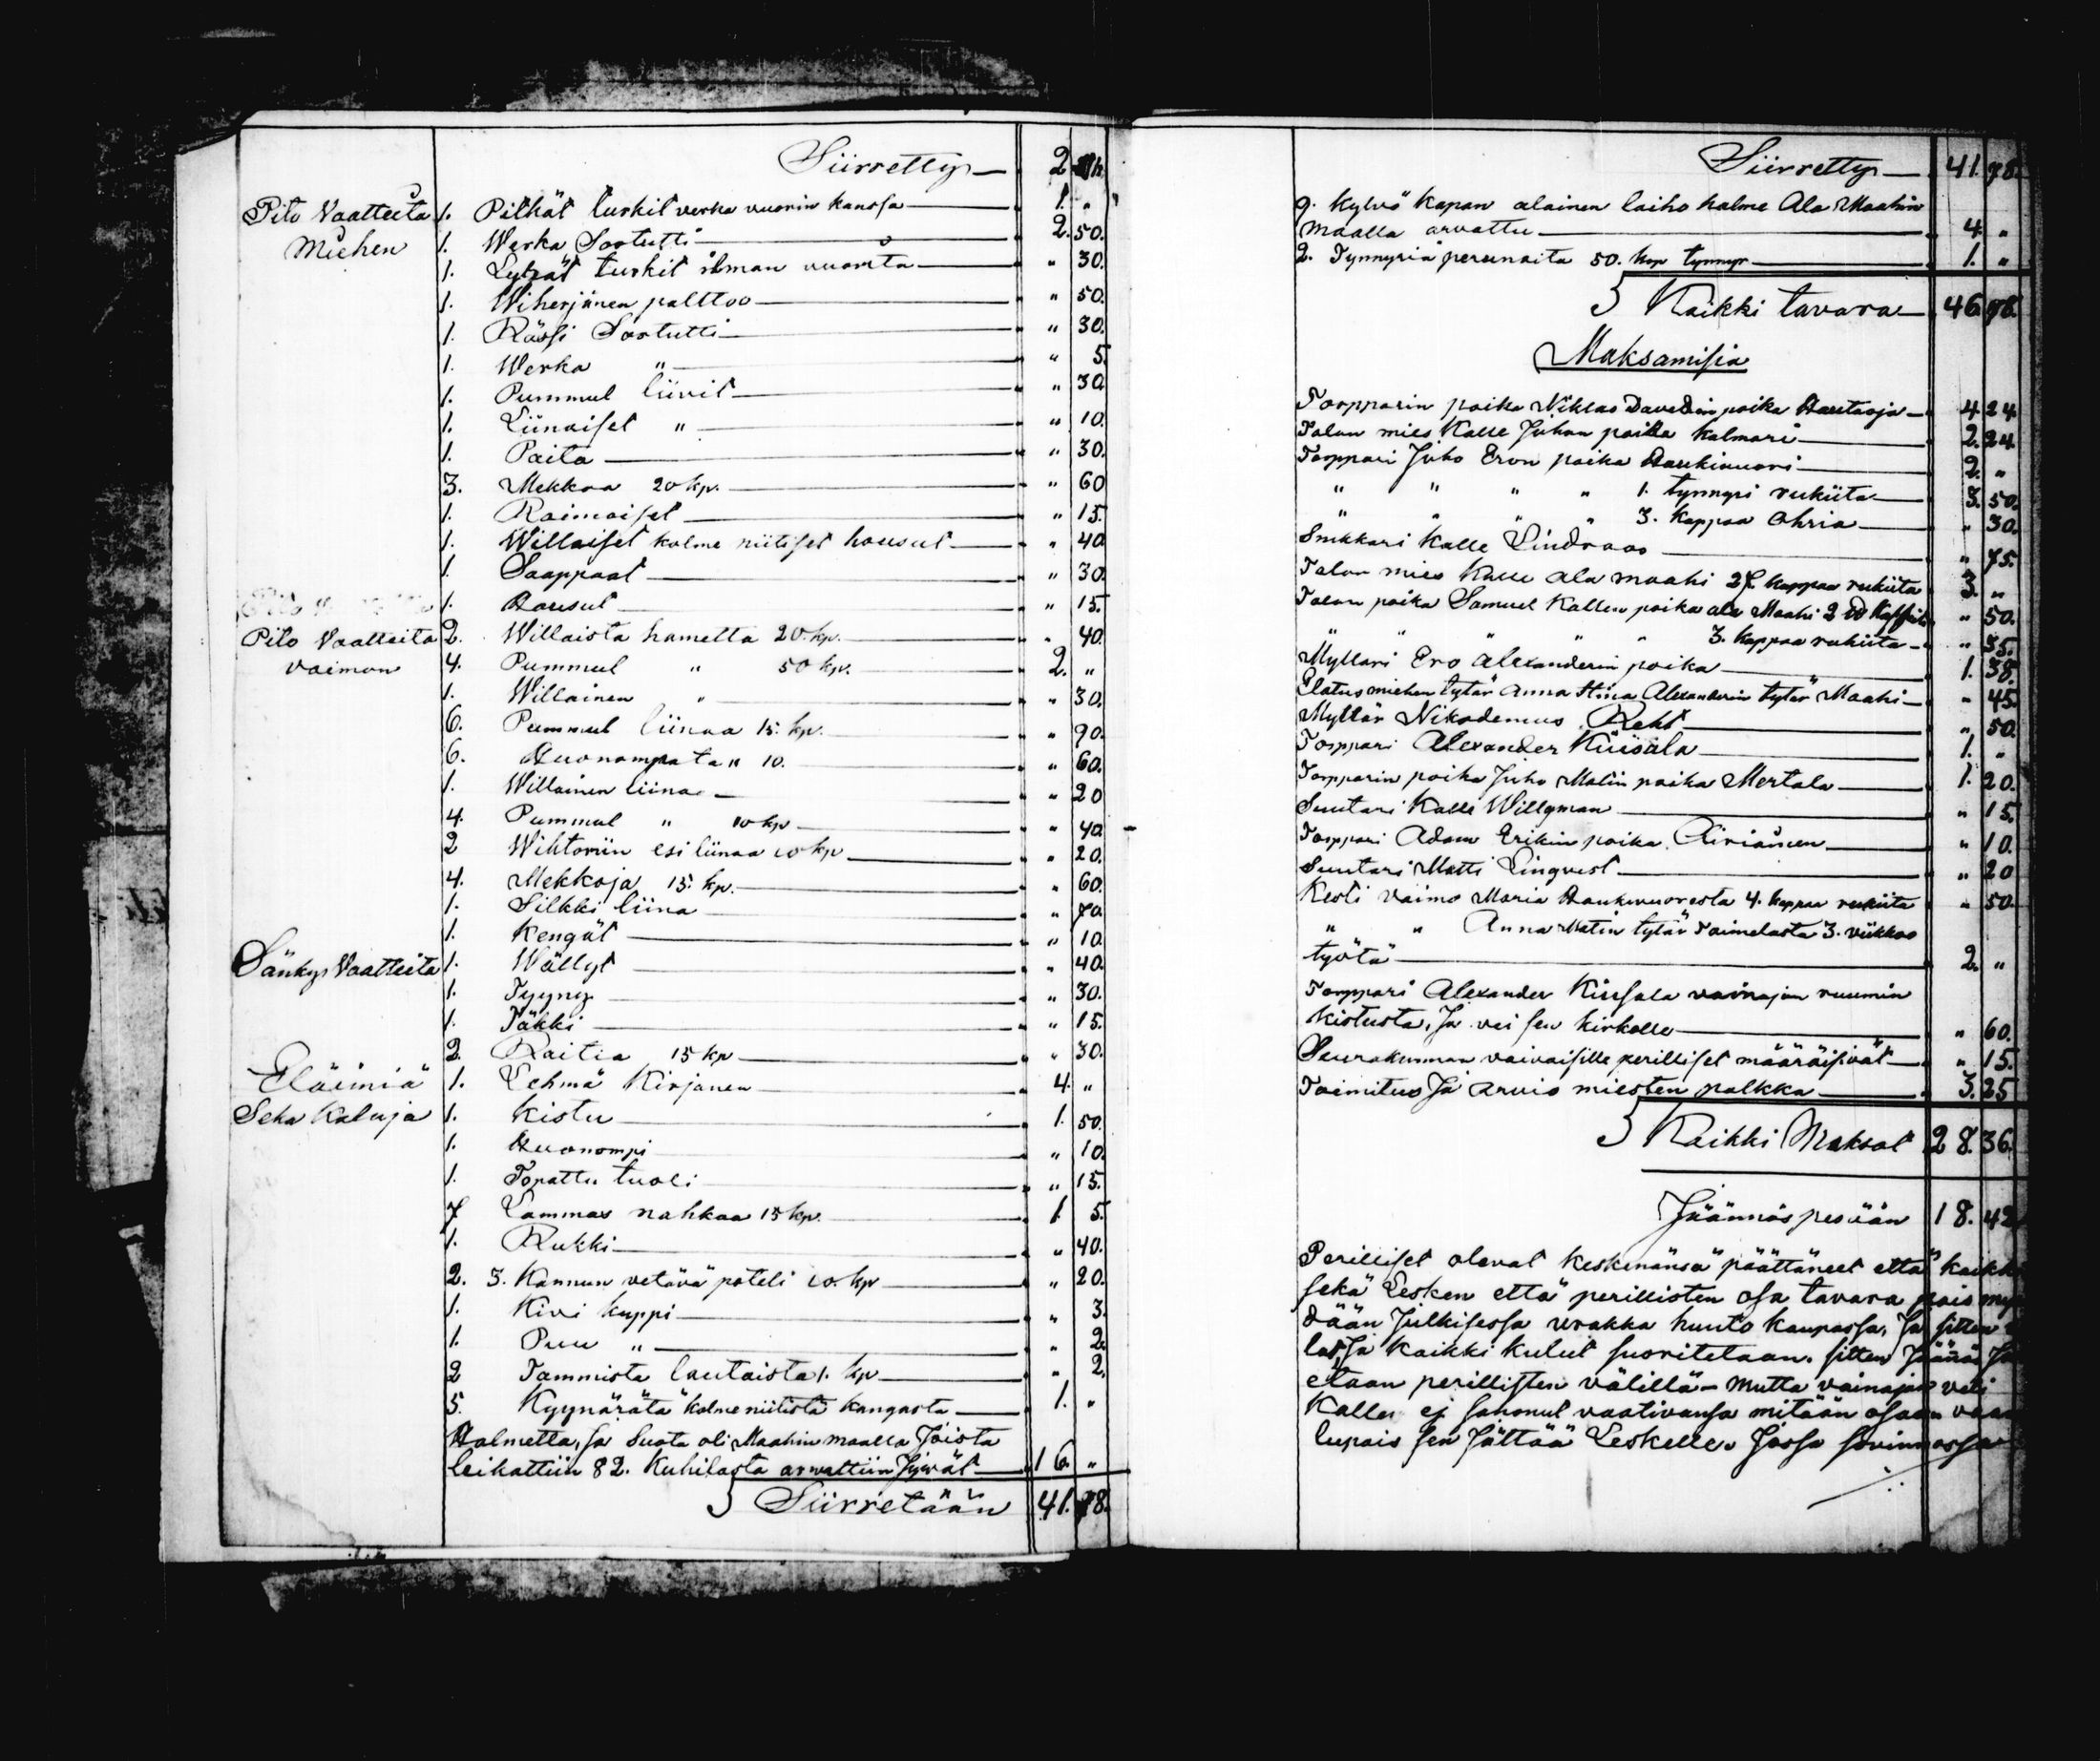 Siirrettyn — 2
Pito Vaatteita 1. Pitkät turkit verka vuorin kanssa — 1. "
Miehen 1. Werka Sortutti — 2. 50.
1. Lyhyät turkit ilman vuorita — " 30.
1. Wiherjänen palttoo — " 50.
1. Rässi Sortutti — " 30.
1. Werka " — " 5.
1. Pummul liivit — " 30.
1. Liinaiset " — " 10.
1. Paita — " 30.
3. Mekkoa 20 kp. — " 60
1. Roimaiset — " 15.
1. Willaiset kolme niitiset housut — " 40
1. Saappaat — " 30.
1. Housut — " 15.
Pito Vaatteita 2. Willaista hametta 20. kp. — " 40.
vaimon 4. Pummul " 50 kp. — 2. "
1. Willainen " — " 30.
6. Pummul liinaa 15. kp. — " 90.
6. Huonompata " 10. — " 60.
1. Willainen liina — " 20
4. Pummul " 10 kp — " 40.
2 Wihtoriin esi liinaa 10 kp — " 20.
4. Mekkoja 15. kp. — " 60.
1. Silkki liina — " 70.
1. Kengät — " 10.
Sänky Vaatteita 1. Wällyt — " 40.
1. Tyyny — " 30.
1. Täkki — " 15.
2. Raitia 15 kp — " 30.
Eläimiä 1. Lehmä Kirjanen — 4. "
Seka Kaluja 1. Kistu — 1. 50.
1. Huonompi — " 10.
1. Topattu tuoli — " 15.
7 Lammas nahkaa 15 kp. — 1. 5.
1. Rukki — " 40.
2. 3. Kannun vetävä poteli 10. kp — " 20.
1. Kivi kuppi — " 3.
1. Puu " — " 2.
2 Tammista lautaista 1. kp — " 2.
5. Kyynärätä kolme niitistä kangasta — 1. "
Halmetta, ja Suota oli Maahin maalla Joista
leikattiin 82. Kuhilasta arwattiin Jyvät — 16. "
Siirretään 41. 78.
Siirrettyn — 41. 78.
9. Kylvö Kapan alainen laiho halme Ala Maahin
maalla arvattu — 4. "
2. Tynnyriä perunaita 50. kop tynnyr — 1. "
Kaikki tavara — 46. 78.
Maksamisia
Torpparin poika Niklas Davedin poika Hautaoja — 4. 24
Talon mies Kalle Juhan poika Kalmari — 2. 24.
Torppari Juho Eron poika Haukivuori — 2. "
" " " " 1. tynnyri rukiita — 3. 50.
" " " " 3. kappaa ohria — " 30.
Snikkari Kalle Lindroos — " 75.
Talon mies Kalle ala maahi 28. kappaa rukiita 3. "
Talon poika Samuel Kallen poika ala Maahi 2 Kaffiit " 50.
" " " " " 3. kappaa rukiita — " 35.
Myllari Ero Alexanderin poika — 1. 38.
Elatusmiehen tytär Anna Stina Alexanderin tytär Maahi — " 45.
Myllär Nikodemus Reht — " 50.
Torppari Alexander Kiisala — 1. "
Torpparin poika Juho Matin poika Mertala — 1. 20.
Suutari Kalle Willgman — " 15.
Torppari Adam Erikin poika Äiriäinen — " 10.
Suutari Matti Linqvest — " 20
Kesti vaimo Maria Haukivuoresta 4. kappaa rukiita " 50.
" " Anna Matin tytär Taimelasta 3. viikkoo
työtä — 2. "
Torppari Alexander Kiisala vainajan ruumin
kistusta, Ja vei sen kirkolle — " 60.
Seurakunnan vaivaisille perilliset määräisivät — " 15.
Toimitus Ja arvio miesten palkka — 3. 25
Kaikki Maksot 28. 36.
Jäännös pesään 18. 42
Perilliset olevat keskenänsä päättäneet että kaikki
sekä Lesken että perillisten osa tavara pois my
dään Julkisessa urakka huuto kaupassa, Ja sitten
las, Ja kaikki kulut suoritetaan. sitten Jäännös Ja
etaan perillisten välillä — Mutta vainajan veli
Kalle ej sanonut vaativansa mitään osaan vaan
lupais sen Jättää Leskelle. Jossa sovinnossa